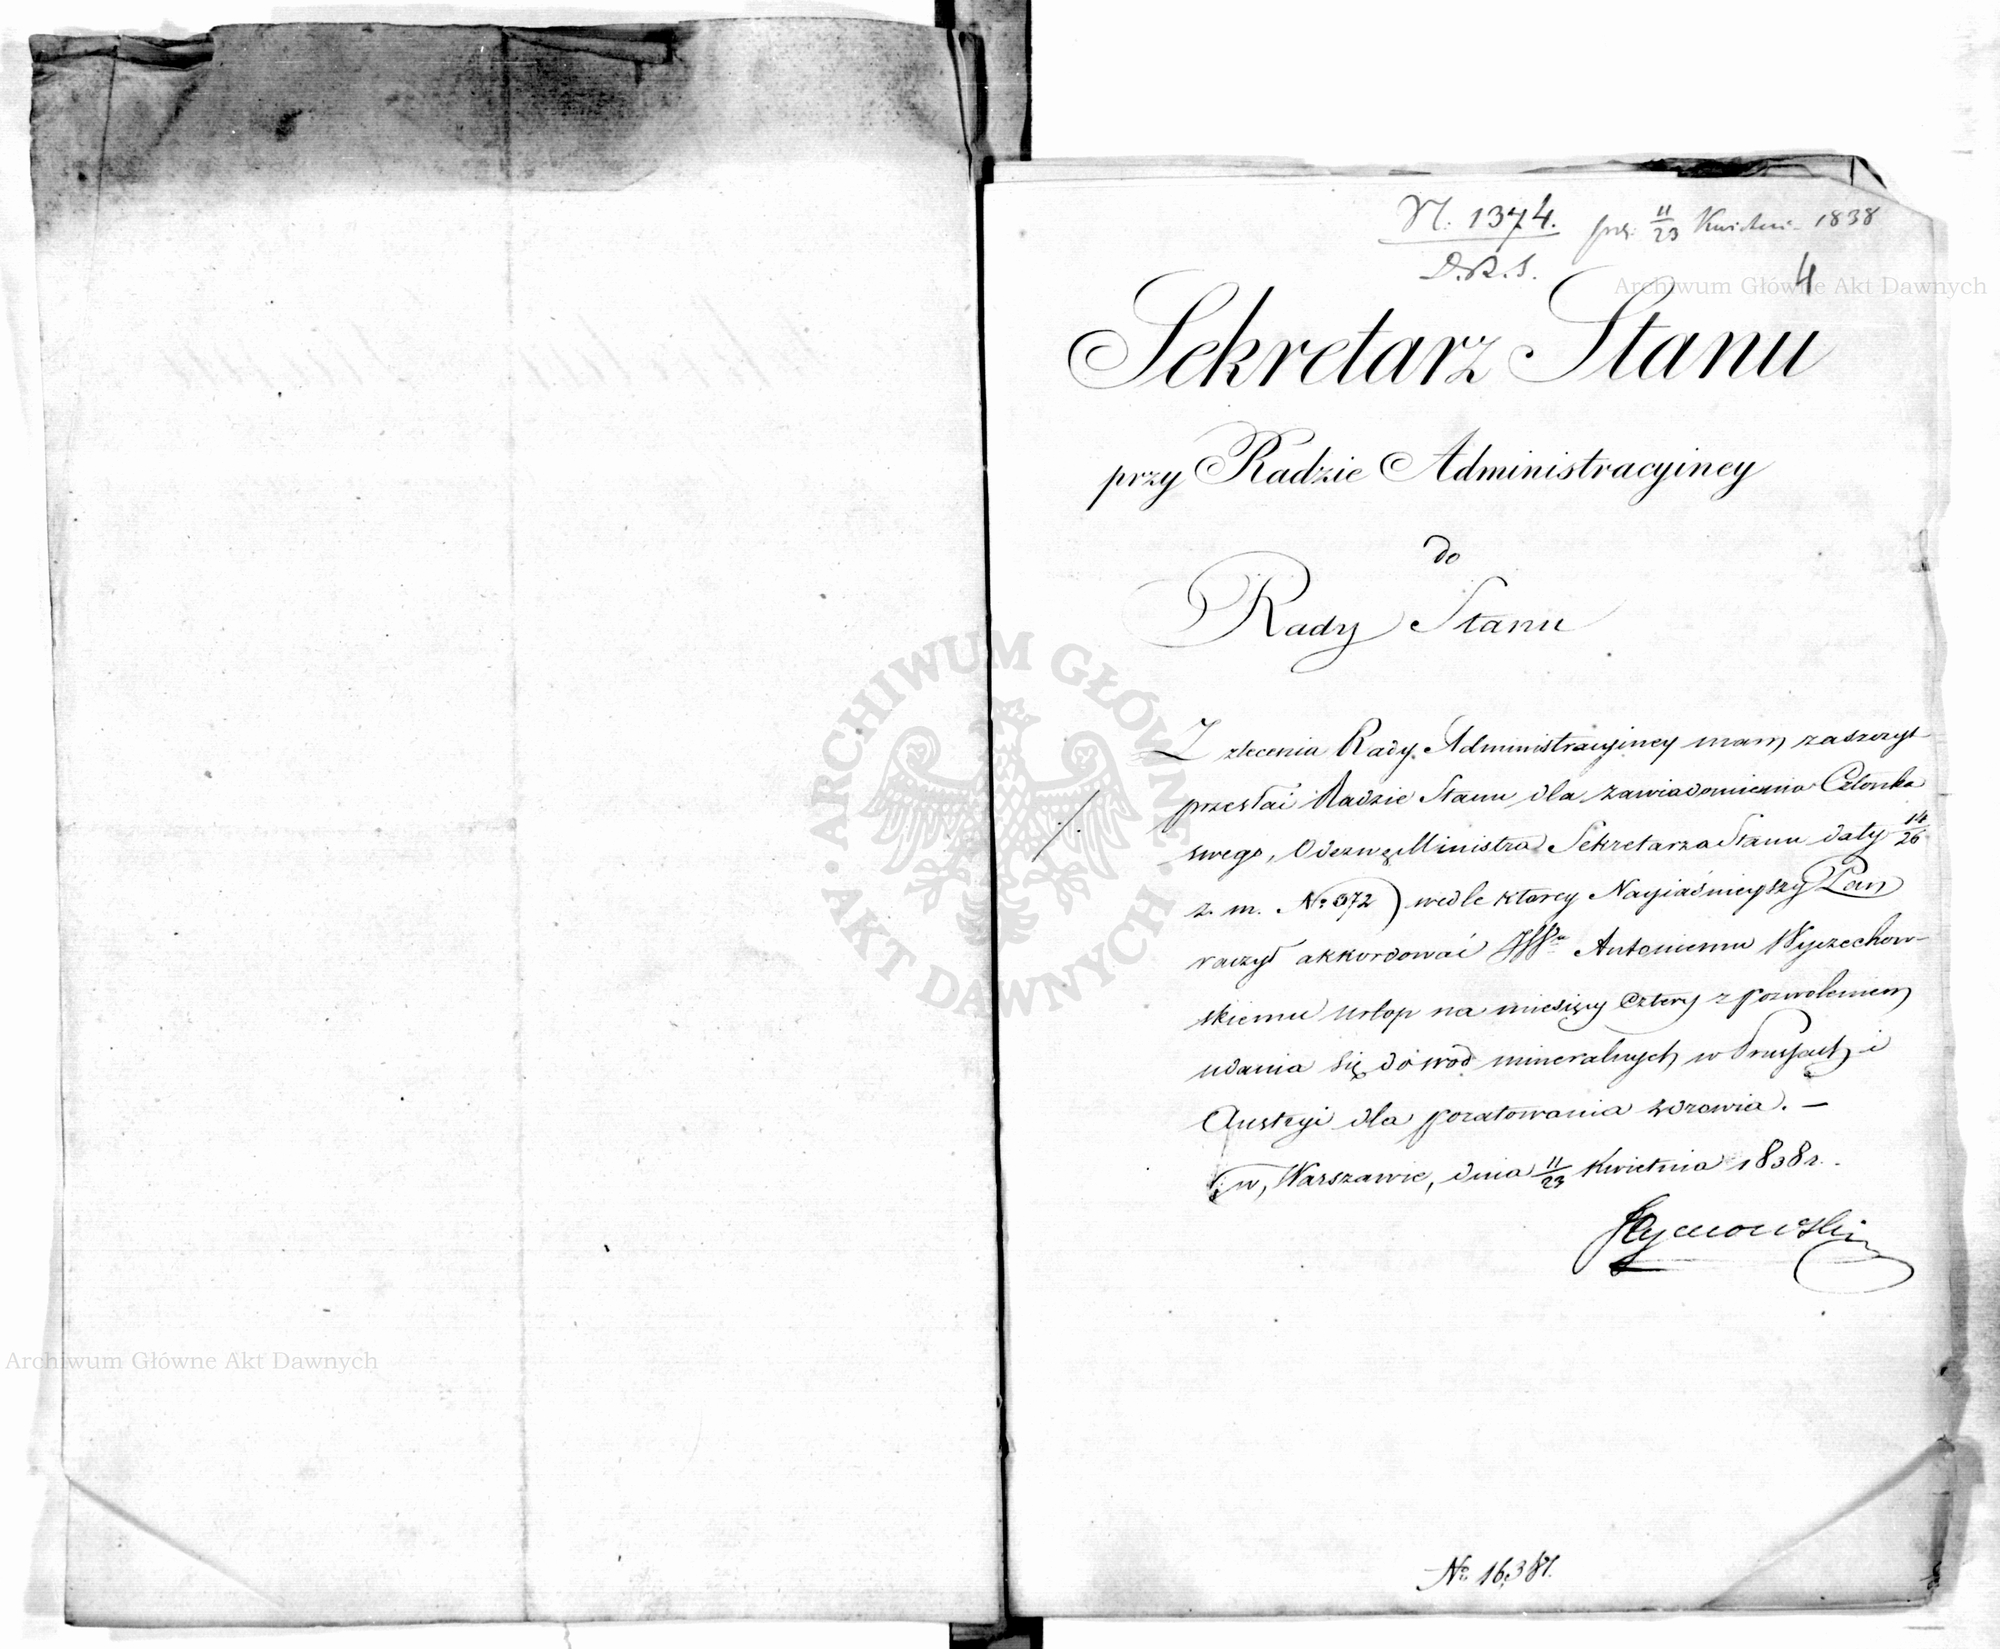 N. 1374. 11/23 1838
D.R.S.
4
Archiwum Główne Akt Dawnych
Sekretarz Stanu
przy Radzie Administracyiney
do
Rady Stanu
Z zlecenia Rady Administracyiney mam zaszczyt
przesłać Radzie Stanu dla zawiadomienia Członka
swego, Odezwę Ministra Sekretarza Stanu daty 14/26
z. m. No 372 wedle ktorey Nayiaśnieyszy Pan
raczył akkordować JWu Antoniemu Wyczechow-
skiemu urlop na miesięcy cztery z pozwoleniem
udania się do wód mineralnych w Prussach i
Austryi dla poratowania zdrowia. —
w Warszawie, dnia 11/23 Kwietnia 1838 r.
No 16,387.
ARCHIWUM GŁÓWNE AKT DAWNYCH
Archiwum Główne Akt Dawnych